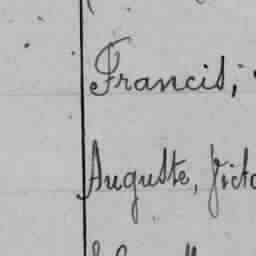 Francis,
Auguste, Victo